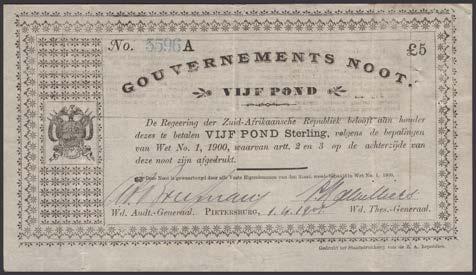 No. 3596 A £5
GOUVERNEMENTS NOOT.
VIJF POND
De Regeering der Zuid-Afrikaansche Republiek belooft aan houder
dezes te betalen VIJF POND Sterling, volgens de bepalingen
van Wet No. 1, 1900, waarvan artt. 2 en 3 op de achterzijde van
deze noot zijn afgedrukt.
Deze Noot is gewaarborgd door alle Vaste Eigendommen van den Staat, Wet No. 1, 1900.
Wd. Audt.-Generaal. PIETERSBURG, 1.4.1901 Wd. Thes.-Generaal.
Gedrukt ter Staatsdrukkerij van de Z. A. Republiek.